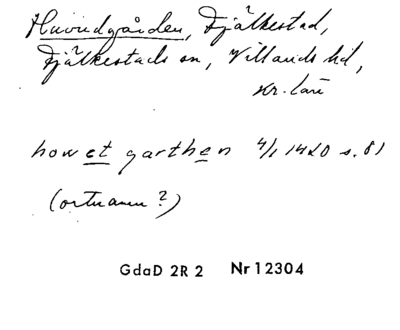 Huvudgården, Fjälkestad,
Fjälkestads sn, Villands hd,
Kr. län
howet garthen 4/1 1420 s. 81
(ortnamn?)
GdaD 2R 2 Nr 12304